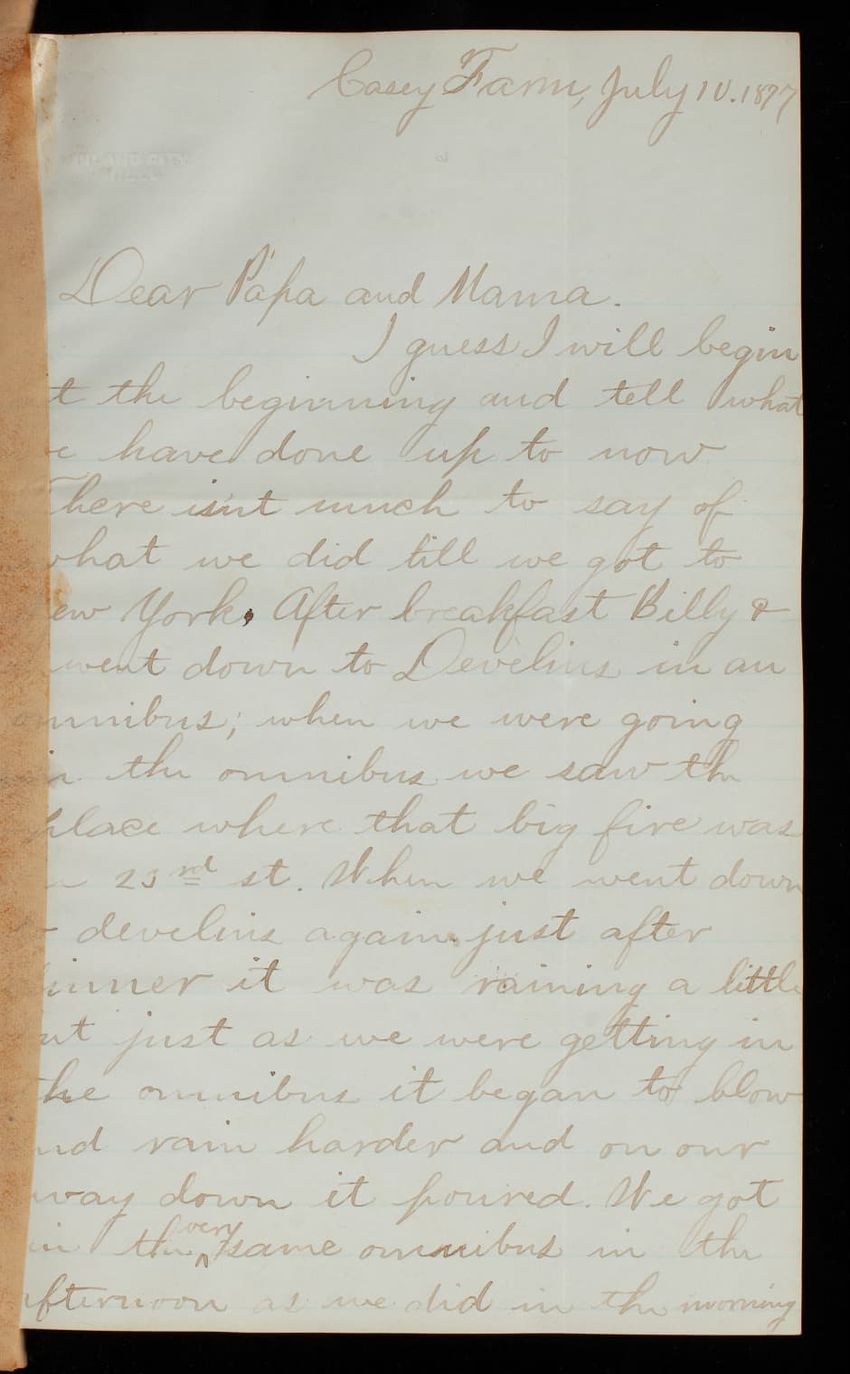 Casey Farm, July 10. 1897
Dear Papa and Mama.
I guess I will begin
t the beginning and tell what
e have done up to now
There isn't much to say of
what we did till we got to
ew York. After breakfast Billy &
went down to Develins in an
omnibus; when we were going
in the omnibus we saw the
place where that big fire was
n 23rd st. When we went down
develins again just after
inner it was raining a little
ut just as we were getting in
the omnibus it began to blow
nd rain harder and on our
way down it poured. We got
in the very same omnibus in the
afternoon as we did in the morning